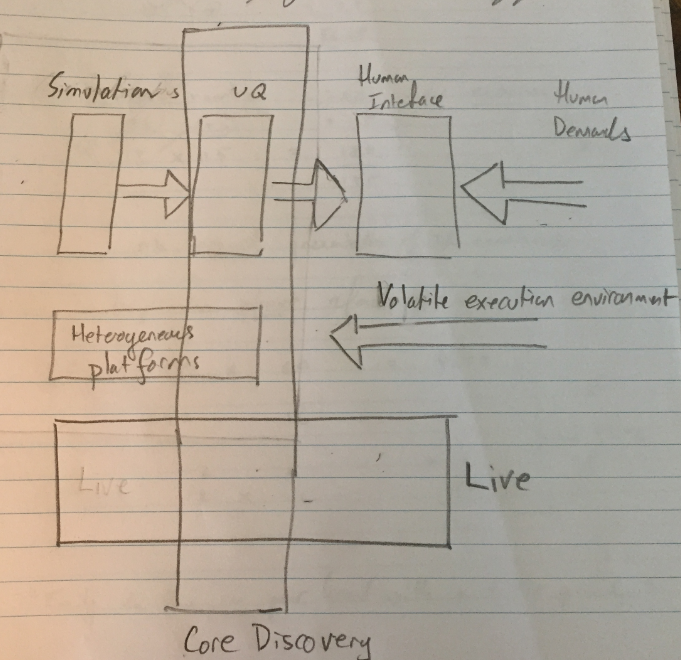 Simulations
UQ
Human
Inteface
Human
Demands
Volatile execution environment
Heterogeneous
platforms
Live
Live
Core Discovery